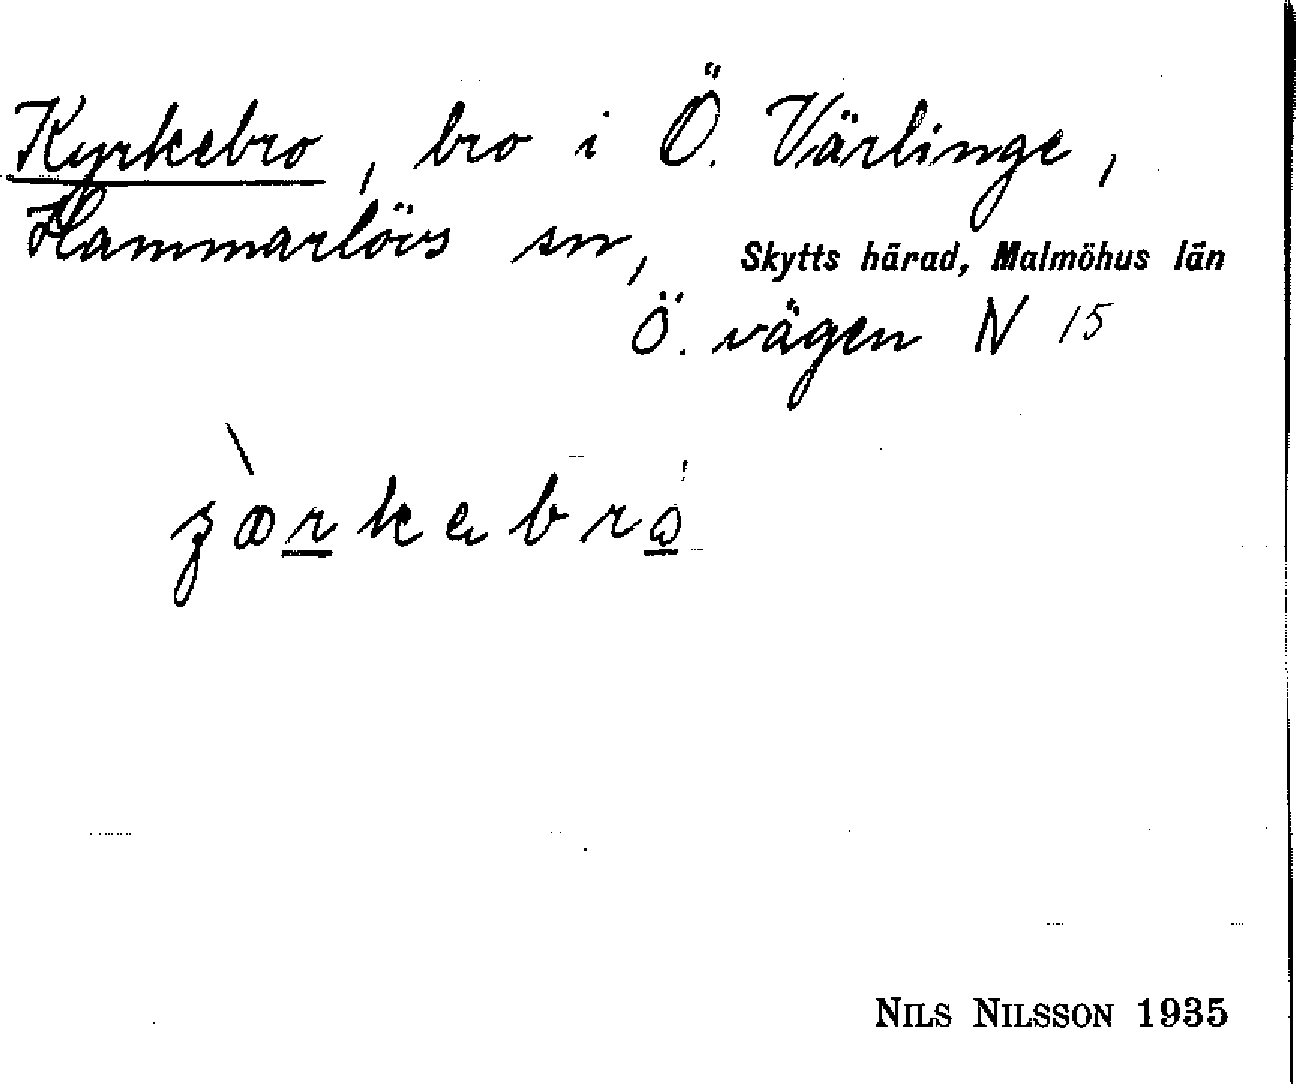 Kyrkebro, bro i Ö. Värlinge,
Hammarlövs sn, Skytts härad, Malmöhus län
Ö. vägen N 15
ʒærkebro
NILS NILSSON 1935